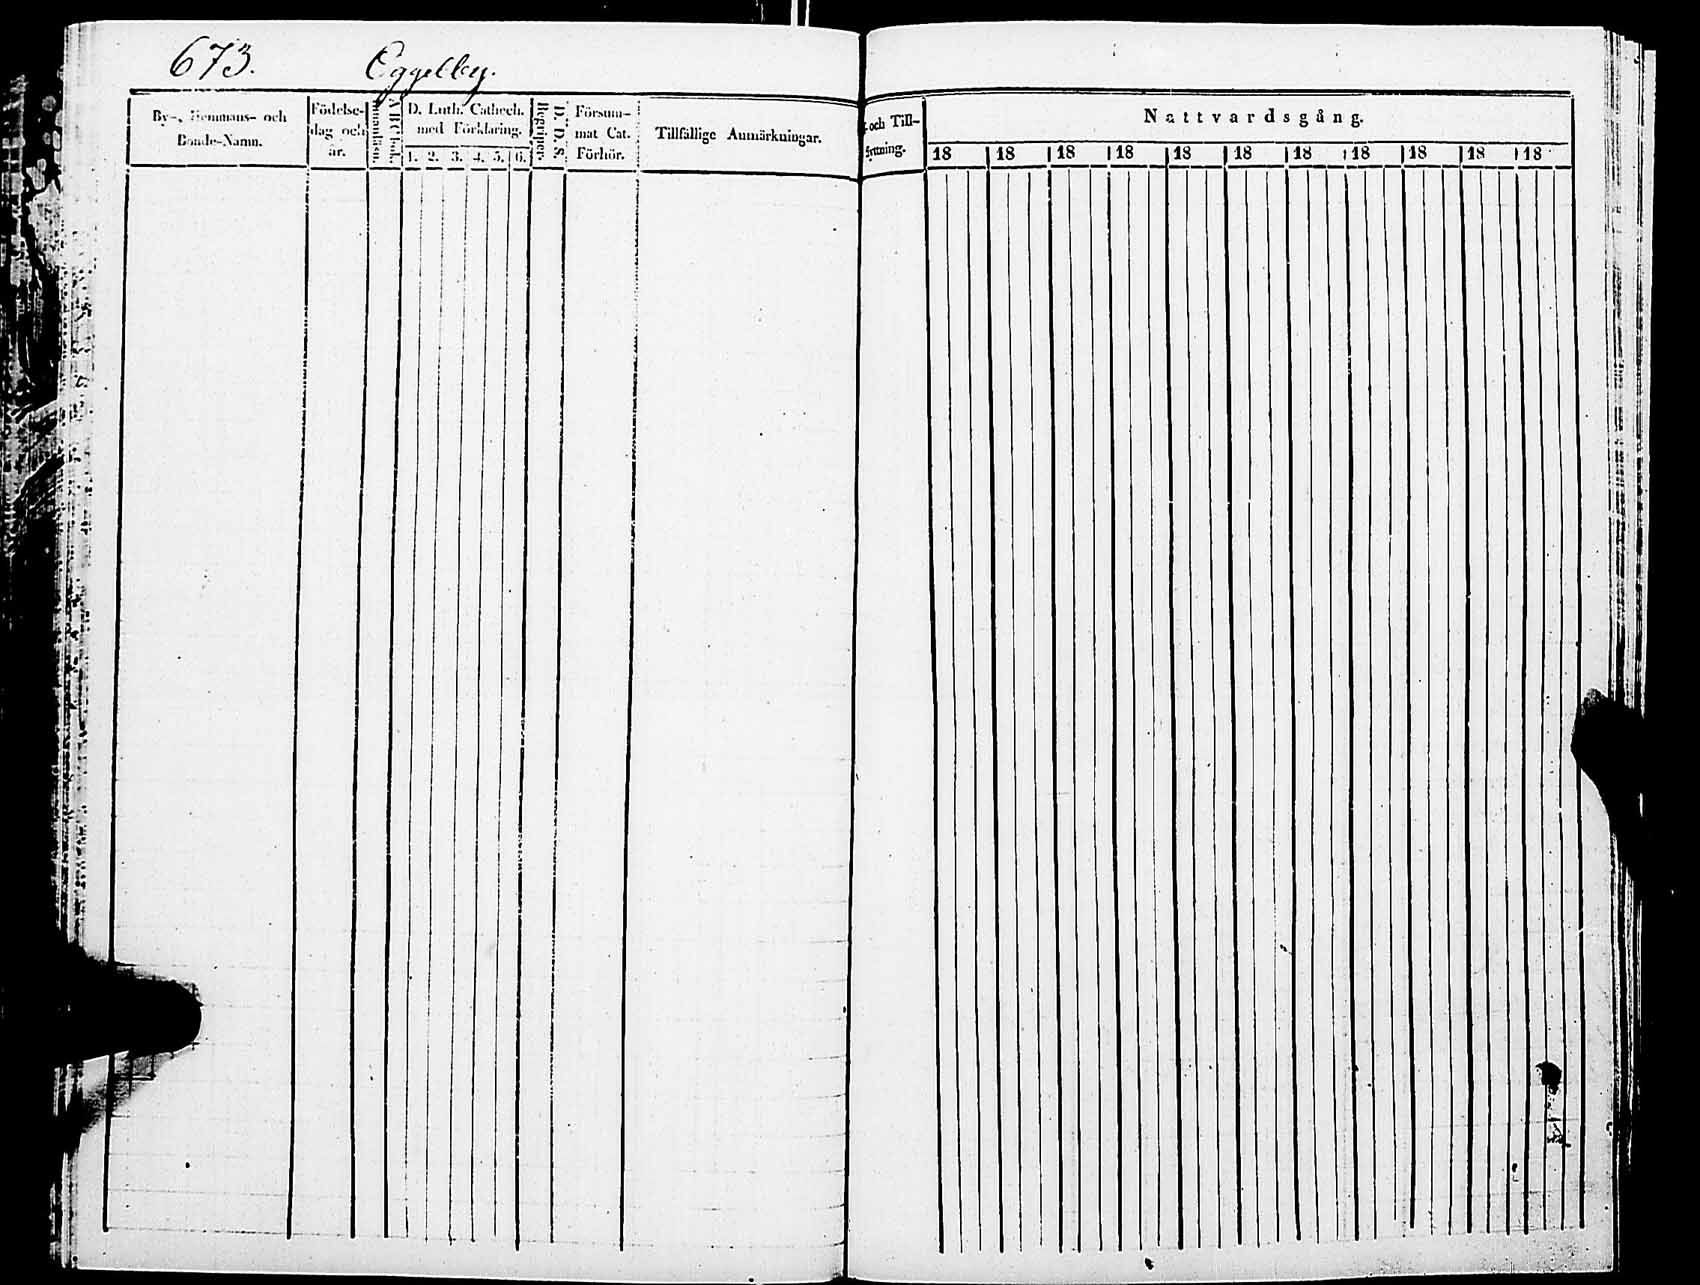 673. Eggelby.
By-, Hemmans- och
Bonde-Namn.
Födelse-
dag och
år.
Innanläsn.
A B C bok.
D. Luth. Cathech.
med Förklaring.
1. 2. 3. 4. 5. 6.
Begriper.
D:o D. S.
Försum-
mat Cat.
Förhör.
Tillfällige Anmärkningar.
och Till-
flyttning.
Nattvardsgång.
18 18 18 18 18 18 18 18 18 18 18